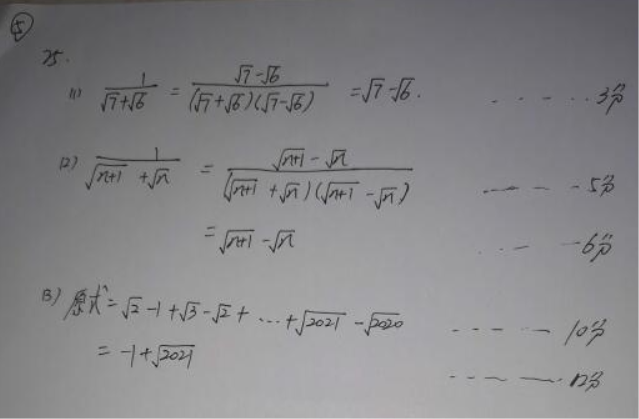 ⑤
25.
(1) 1/(√7+√6) = (√7-√6)/((√7+√6)(√7-√6)) = √7-√6. ------3分
(2) 1/(√(n+1) +√n) = (√(n+1) - √n)/((√(n+1) +√n)(√(n+1) -√n)) ------5分
= √(n+1) -√n ------6分
(3) 原式= √2 -1 +√3 -√2 + … +√2021 -√2020 ------10分
= -1+√2021 ------12分